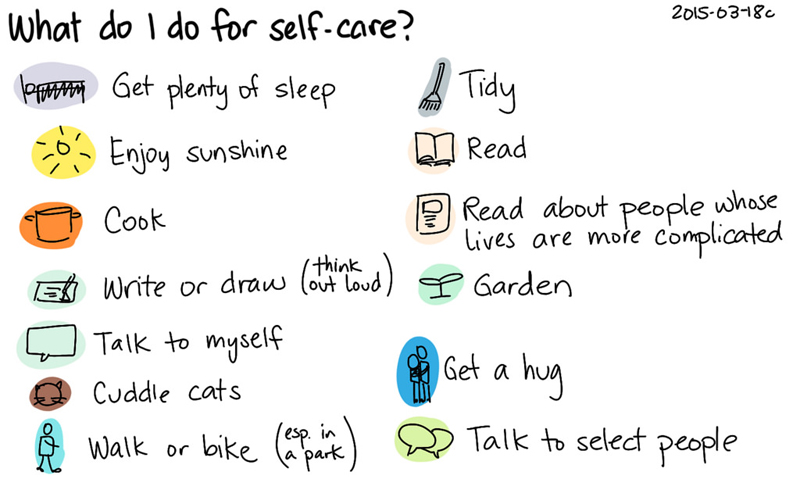 What do I do for self-care?
2015-03-18c
Get plenty of sleep
Enjoy sunshine
Cook
Write or draw (think
out loud)
Talk to myself
Cuddle cats
Walk or bike (esp. in
a park)
Tidy
Read
Read about people whose
lives are more complicated
Garden
Get a hug
Talk to select people